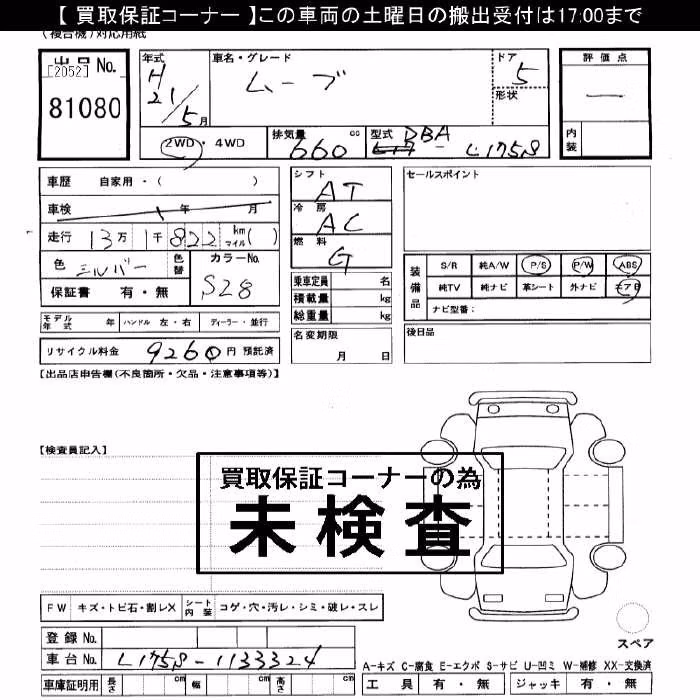 【 買取保証コーナー 】この車両の土曜日の搬出受付は17:00まで
(複合機)対応用紙
出品No.
[2052]
81080
年式 H21/5月
車名・グレード ムーブ
ドア 5
形状
評価点 —
内装
2WD・4WD
排気量 660 cc
型式 DBA - L175S
車歴 自家用・( )
車検 年 月
走行 13万1千822 km マイル( )
色 シルバー 色替
カラーNo. S28
保証書 有・無
モデル年式 年 ハンドル 左・右 ディーラー・並行
リサイクル料金 9260円 預託済
シフト AT
冷房 AC
燃料 G
乗車定員 名
積載量 kg
総重量 kg
名変期限
月 日
セールスポイント
装備品
S/R 純A/W P/S P/W ABS
純TV 純ナビ 革シート 外ナビ エアB
ナビ型番:
後日品
【出品店申告欄(不良箇所・欠品・注意事項等)】
【検査員記入】
買取保証コーナーの為
未検査
FW キズ・トビ石・割レX シート内装 コゲ・穴・汚レ・シミ・破レ・スレ
登録 No.
車台 No. L175S-1133324
車庫証明用 長さ cm 幅 cm 高さ cm
スペア
A-キズ C-腐食 E-エクボ S-サビ U-凹ミ W-補修 XX-交換済
工具 有・無 ジャッキ 有・無